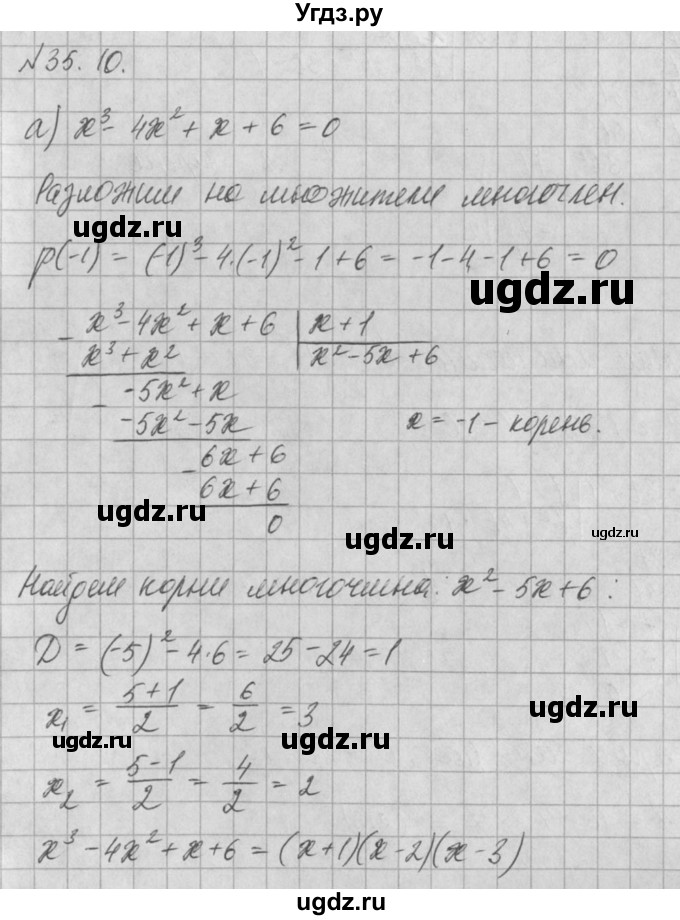 Угдз.ру
№35.10.
а) x³ - 4x² + x + 6 = 0
Разложим на множители многочлен.
ugdz.ru
p(-1) = (-1)³ - 4·(-1)² - 1 + 6 = -1 - 4 - 1 + 6 = 0
ugdz.ru
- x³ - 4x² + x + 6 | x + 1
x³ + x² x² - 5x + 6
ugdz.ru
- -5x² + x
-5x² - 5x x = -1 - корень.
- 6x + 6
6x + 6
ugdz.ru
0
ugdz.ru
ugdz.ru
Найдем корни многочлена: x² - 5x + 6 :
D = (-5)² - 4·6 = 25 - 24 = 1
x₁ = 5+1/2 = 6/2 = 3
ugdz.ru
ugdz.ru
x₂ = 5-1/2 = 4/2 = 2
x³ - 4x² + x + 6 = (x+1)(x-2)(x-3)
ugdz.ru
ugdz.ru